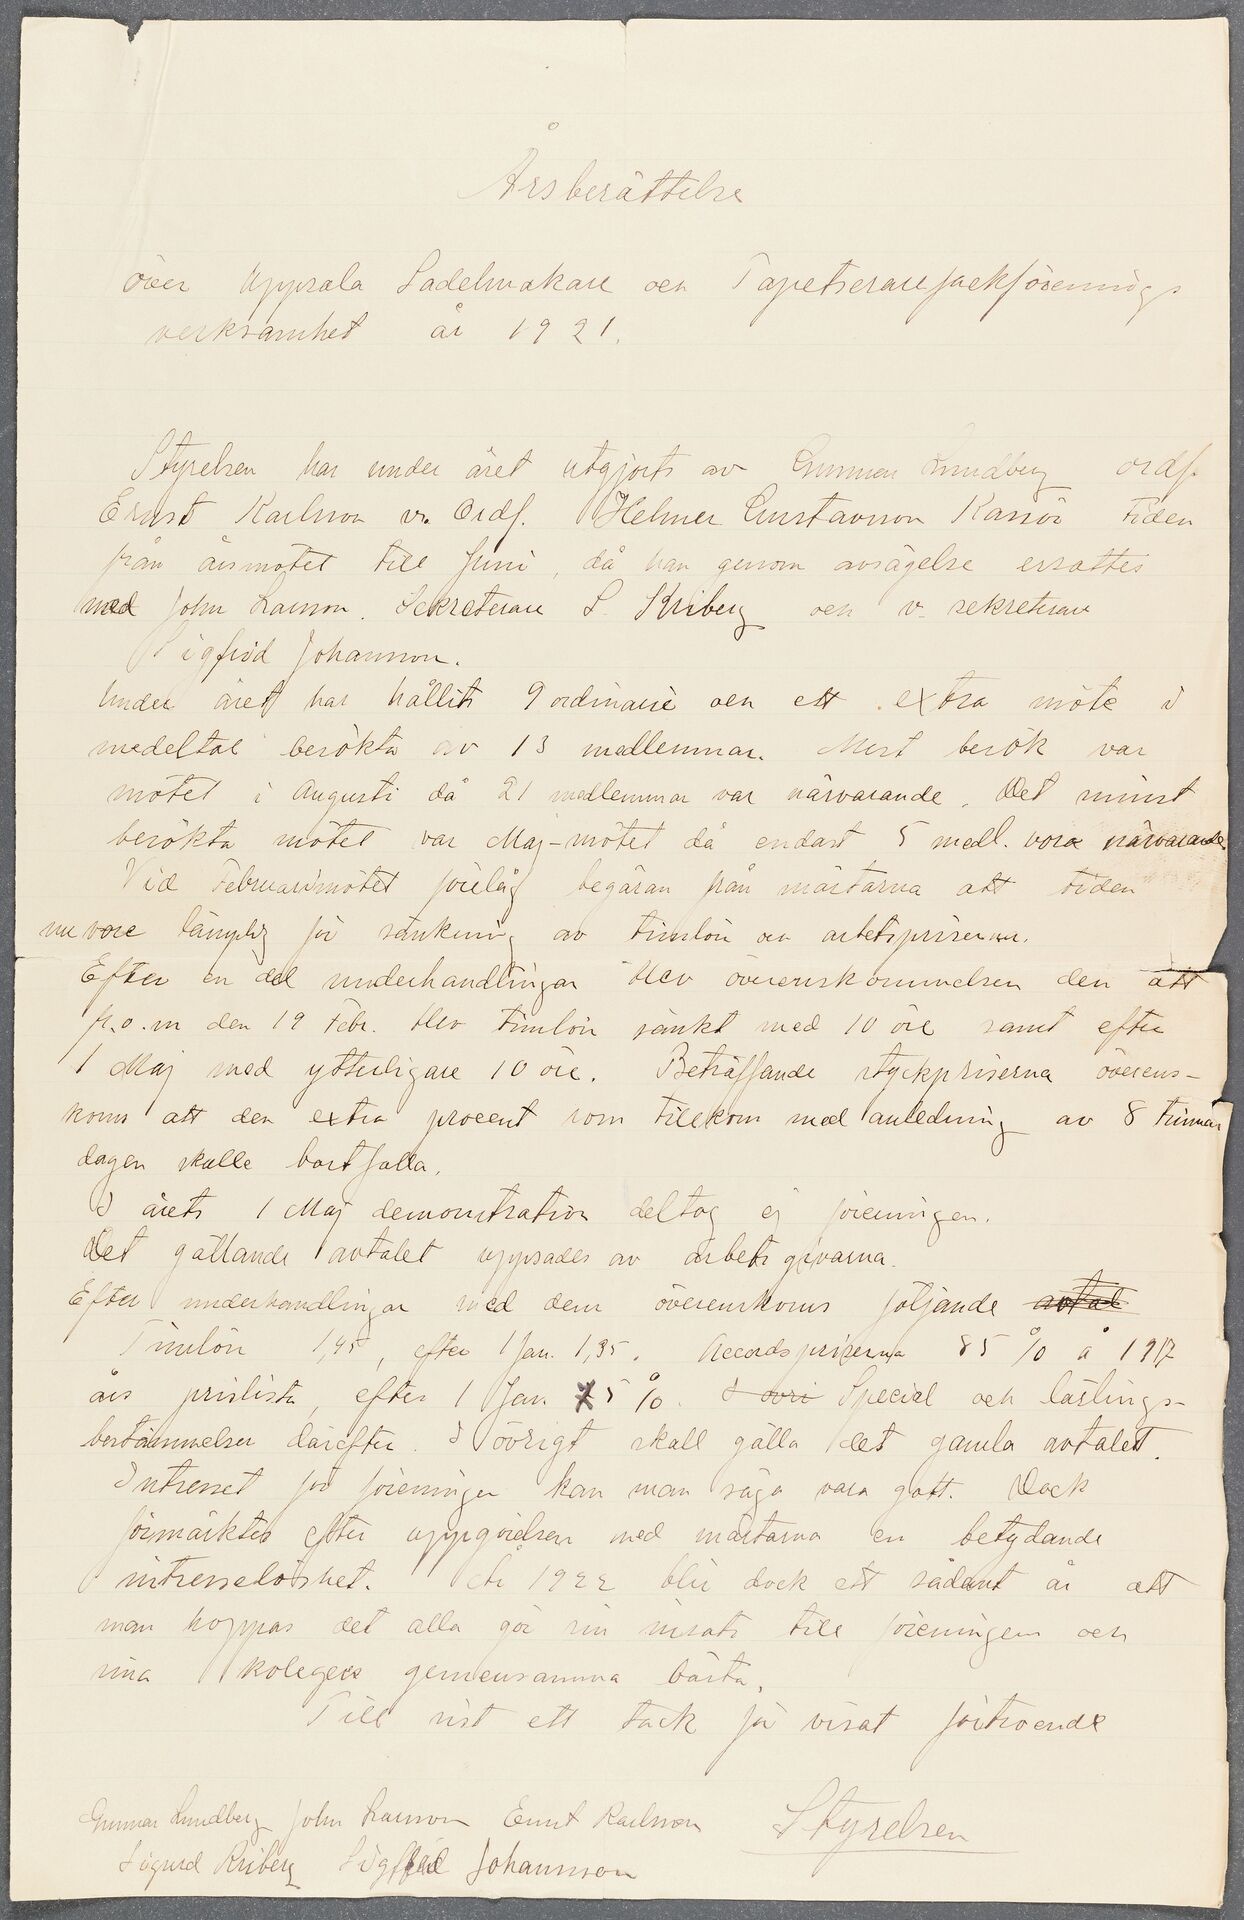 Årsberättelse
över Uppsala Sadelmakare och Tapetserarefackförenings
verksamhet år 1921.
Styrelsen har under året utgjorts av Gunnar Lundberg ordf.
Ernst Karlsson v. Ordf. Helmer Gustavsson Kassör tiden
från årsmötet till Juni, då han genom avsägelse ersattes
med John Larsson. Sekreterare S. Kriberg och v. sekreterare
Sigfrid Johansson.
Under året har hållits 9 ordinarie och ett extra möte i
medeltal besökta av 13 medlemmar. Mest besök var
mötet i Augusti då 21 medlemmar var närvarande. Det minst
besökta mötet var Maj-mötet då endast 5 medl. vora närvarande
Vid Februarimötet förelåg begäran från mästarna att tiden
nu vore lämplig för sänkning av timlön och arbetspriserna.
Efter en del underhandlingar blev överenskommelsen den att
fr.o.m den 19 Febr. blev timlön sänkt med 10 öre samt efter
1 Maj med ytterligare 10 öre. Beträffande styckpriserna överens-
koms att den extra procent som tillkom med anledning av 8 timmars
dagen skulle bortfalla.
I årets 1 Maj demonstration deltog ej föreningen.
Det gällande avtalet uppsades av arbetsgivarna.
Efter underhandlingar med dem överenskoms följande avtal
Timlön 1,45, efter 1 Jan. 1,35. Accordspriserna 85 % å 1917
års prislista, efter 1 Jan. 75 %. I övri Special och lärlings-
bestämmelser därefter. I övrigt skall gälla det gamla avtalet.
Intresset för föreningen kan man säga vara gott. Dock
förmärktes efter uppgörelsen med mästarna en betydande
intresselöshet. År 1922 blir dock ett sådant år att
man hoppas det alla gör sin insats till föreningens och
sina kolegers gemensamma bästa.
Till sist ett tack för visat förtroende
Gunnar Lundberg John Larsson Ernst Karlsson Styrelsen
Sigurd Kriberg Sigfrid Johansson